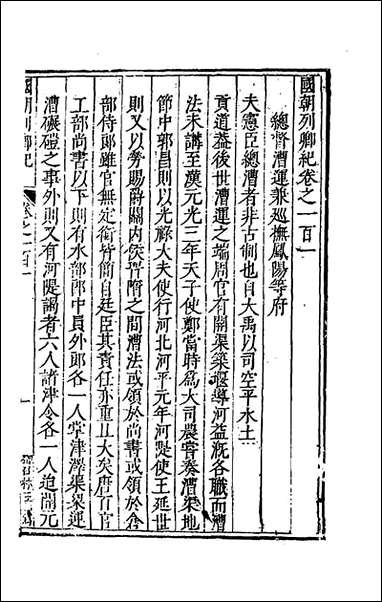 國朝列卿紀卷之一百一
總督漕運兼巡撫鳳陽等府
夫憲臣總漕者非古制也自大禹以司空平水土
貢道益後世漕運之端周官有開渠築堰導河益溉各職而漕
法未講至漢元光三年天子使鄭當時爲大司農嘗奏漕渠地
節中郭昌則以光祿大夫使行河北河平元年河隄使王延世
則又以勞賜爵關內侯晉隋之間漕法或領於尚書或領於倉
部侍郎雖官無定銜皆簡自廷臣其責任亦重且大矣唐百官
工部尚書以下則有水部郎中員外郎各一人掌津澤渠梁運
漕碾磑之事外則又有河隄謁者六人諸津令各一人迨開元
國朝列卿紀
卷之一百一
一